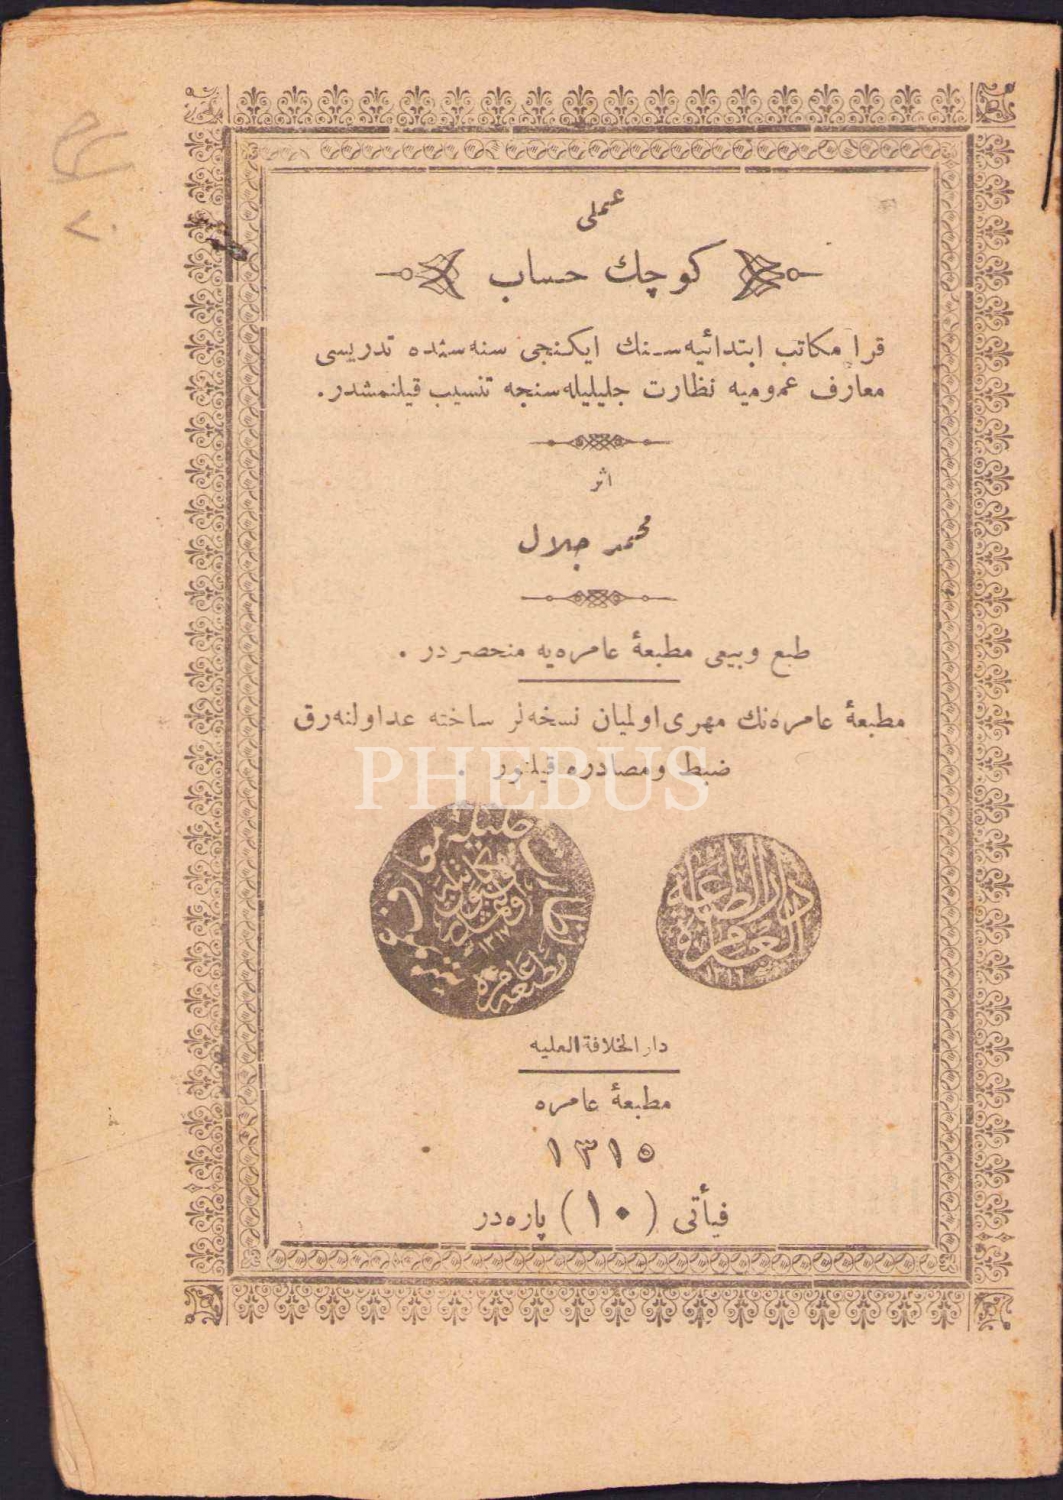 عملی
كوچك حساب
قرا مكاتب ابتدائیه‌سنك ایكنجی سنه‌سنده تدریسی
معارف عمومیه نظارت جلیلیله‌سنجه تنسیب قیلنمشدر.
اثر
محمد جلال
طبع و بیعی مطبعۀ عامره‌یه منحصردر .
مطبعۀ عامره‌نك مهری اولمیان نسخه‌لر ساخته عد اولنه‌رق
ضبط و مصادره قیلنور .
PHEBUS
دار الطباعة
العامره
١٣١٦
معارف
مطبعه عامره
١٣١٧
دار الخلافة العلیه
مطبعۀ عامره
١٣١٥
فیأتی (١٠) پاره‌در